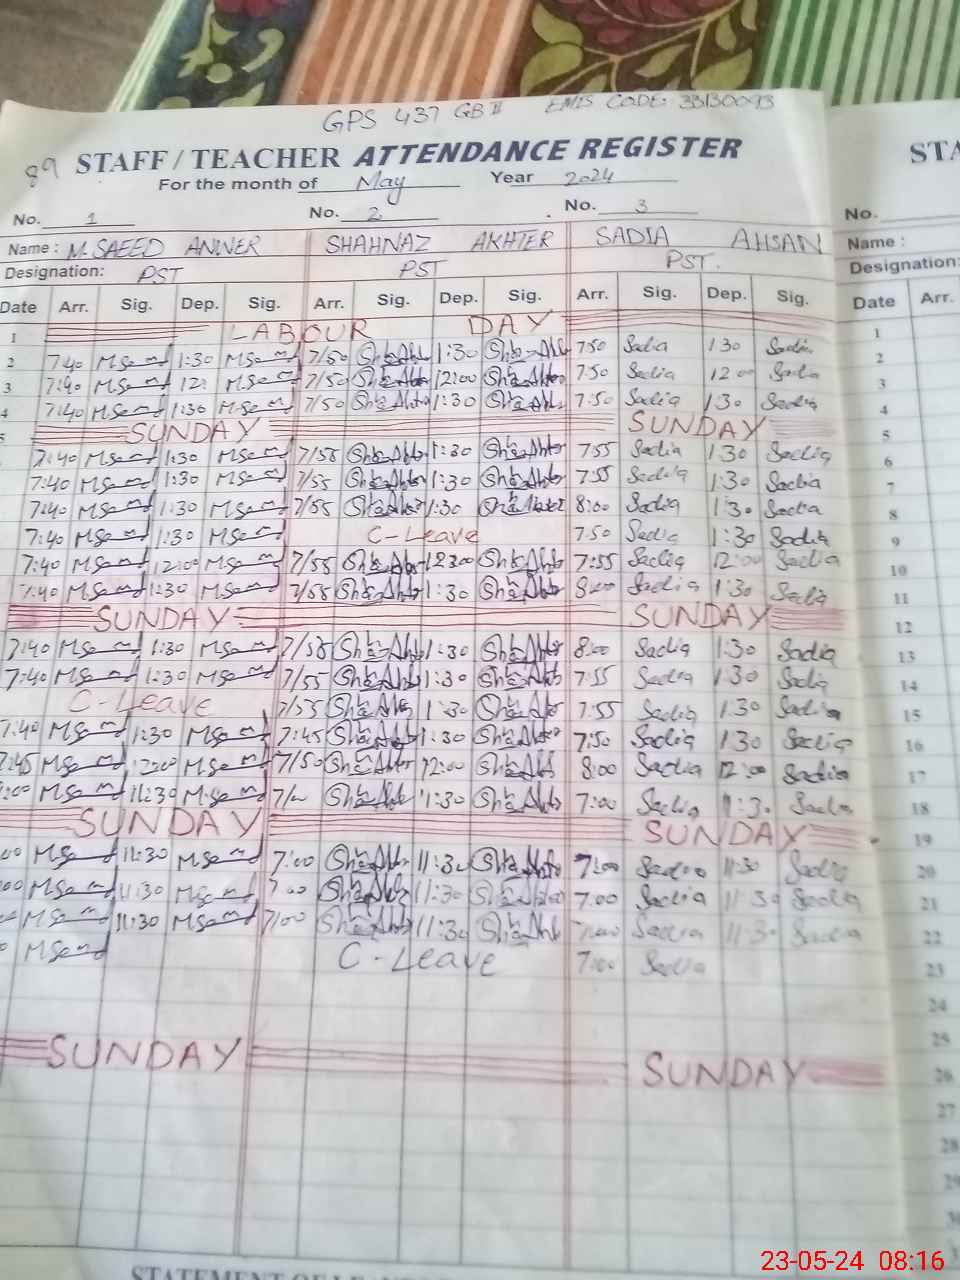 GPS 437 GB II EMIS CODE: 33130093
89 STAFF / TEACHER ATTENDANCE REGISTER STA
For the month of May Year 2024
No. 1 No. 2 No. 3 No.
Name : M. SAEED ANWER SHAHNAZ AKHTER SADIA AHSAN Name :
Designation: PST PST PST. Designation:
Date Arr. Sig. Dep. Sig. Arr. Sig. Dep. Sig. Arr. Sig. Dep. Sig. Date Arr.
1 LABOUR DAY 1
2 7:40 M Saeed 1:30 M Saeed 7/50 1:30 7:50 Sadia 1:30 Sadia 2
3 7:40 M Saeed M Saeed 7/50 12:00 7:50 Sadia 12:00 Sadia 3
4 7:40 M Saeed 1:30 M Saeed 7/50 1:30 7:50 Sadia 1:30 Sadia 4
5 SUNDAY SUNDAY 5
7:40 M Saeed 1:30 M Saeed 7/55 1:30 7:55 Sadia 1:30 Sadia 6
7:40 M Saeed 1:30 M Saeed 7/55 1:30 7:55 Sadia 1:30 Sadia 7
7:40 M Saeed 1:30 M Saeed 7/55 1:30 8:00 Sadia 1:30 Sadia 8
7:40 M Saeed 1:30 M Saeed C-Leave 7:50 Sadia 1:30 Sadia 9
7:40 M Saeed 12:00 M Saeed 7/55 12:00 7:55 Sadia 12:00 Sadia 10
7:40 M Saeed 1:30 M Saeed 7/55 1:30 8:00 Sadia 1:30 Sadia 11
SUNDAY SUNDAY 12
7:40 M Saeed 1:30 M Saeed 7/55 1:30 8:00 Sadia 1:30 Sadia 13
7:40 M Saeed 1:30 M Saeed 7/55 1:30 7:55 Sadia 1:30 Sadia 14
C-Leave 7/55 1:30 7:55 Sadia 1:30 Sadia 15
7:40 M Saeed 1:30 M Saeed 7:45 1:30 7:50 Sadia 1:30 Sadia 16
7:45 M Saeed 12:00 M Saeed 7/50 12:00 8:00 Sadia 12:00 Sadia 17
:00 M Saeed 11:30 M Saeed 11:30 7:00 Sadia 11:30 Sadia 18
SUNDAY SUNDAY 19
00 M Saeed 11:30 M Saeed 7:00 11:30 7:00 Sadia 11:30 Sadia 20
00 M Saeed 11:30 M Saeed 7:00 11:30 7:00 Sadia 11:30 Sadia 21
M Saeed 11:30 M Saeed 7/00 11:30 7:00 Sadia 11:30 Sadia 22
M Saeed C-Leave 7:00 Sadia 23
24
25
SUNDAY SUNDAY 26
27
28
29
30
STATEMENT OF LE
23-05-24 08:16